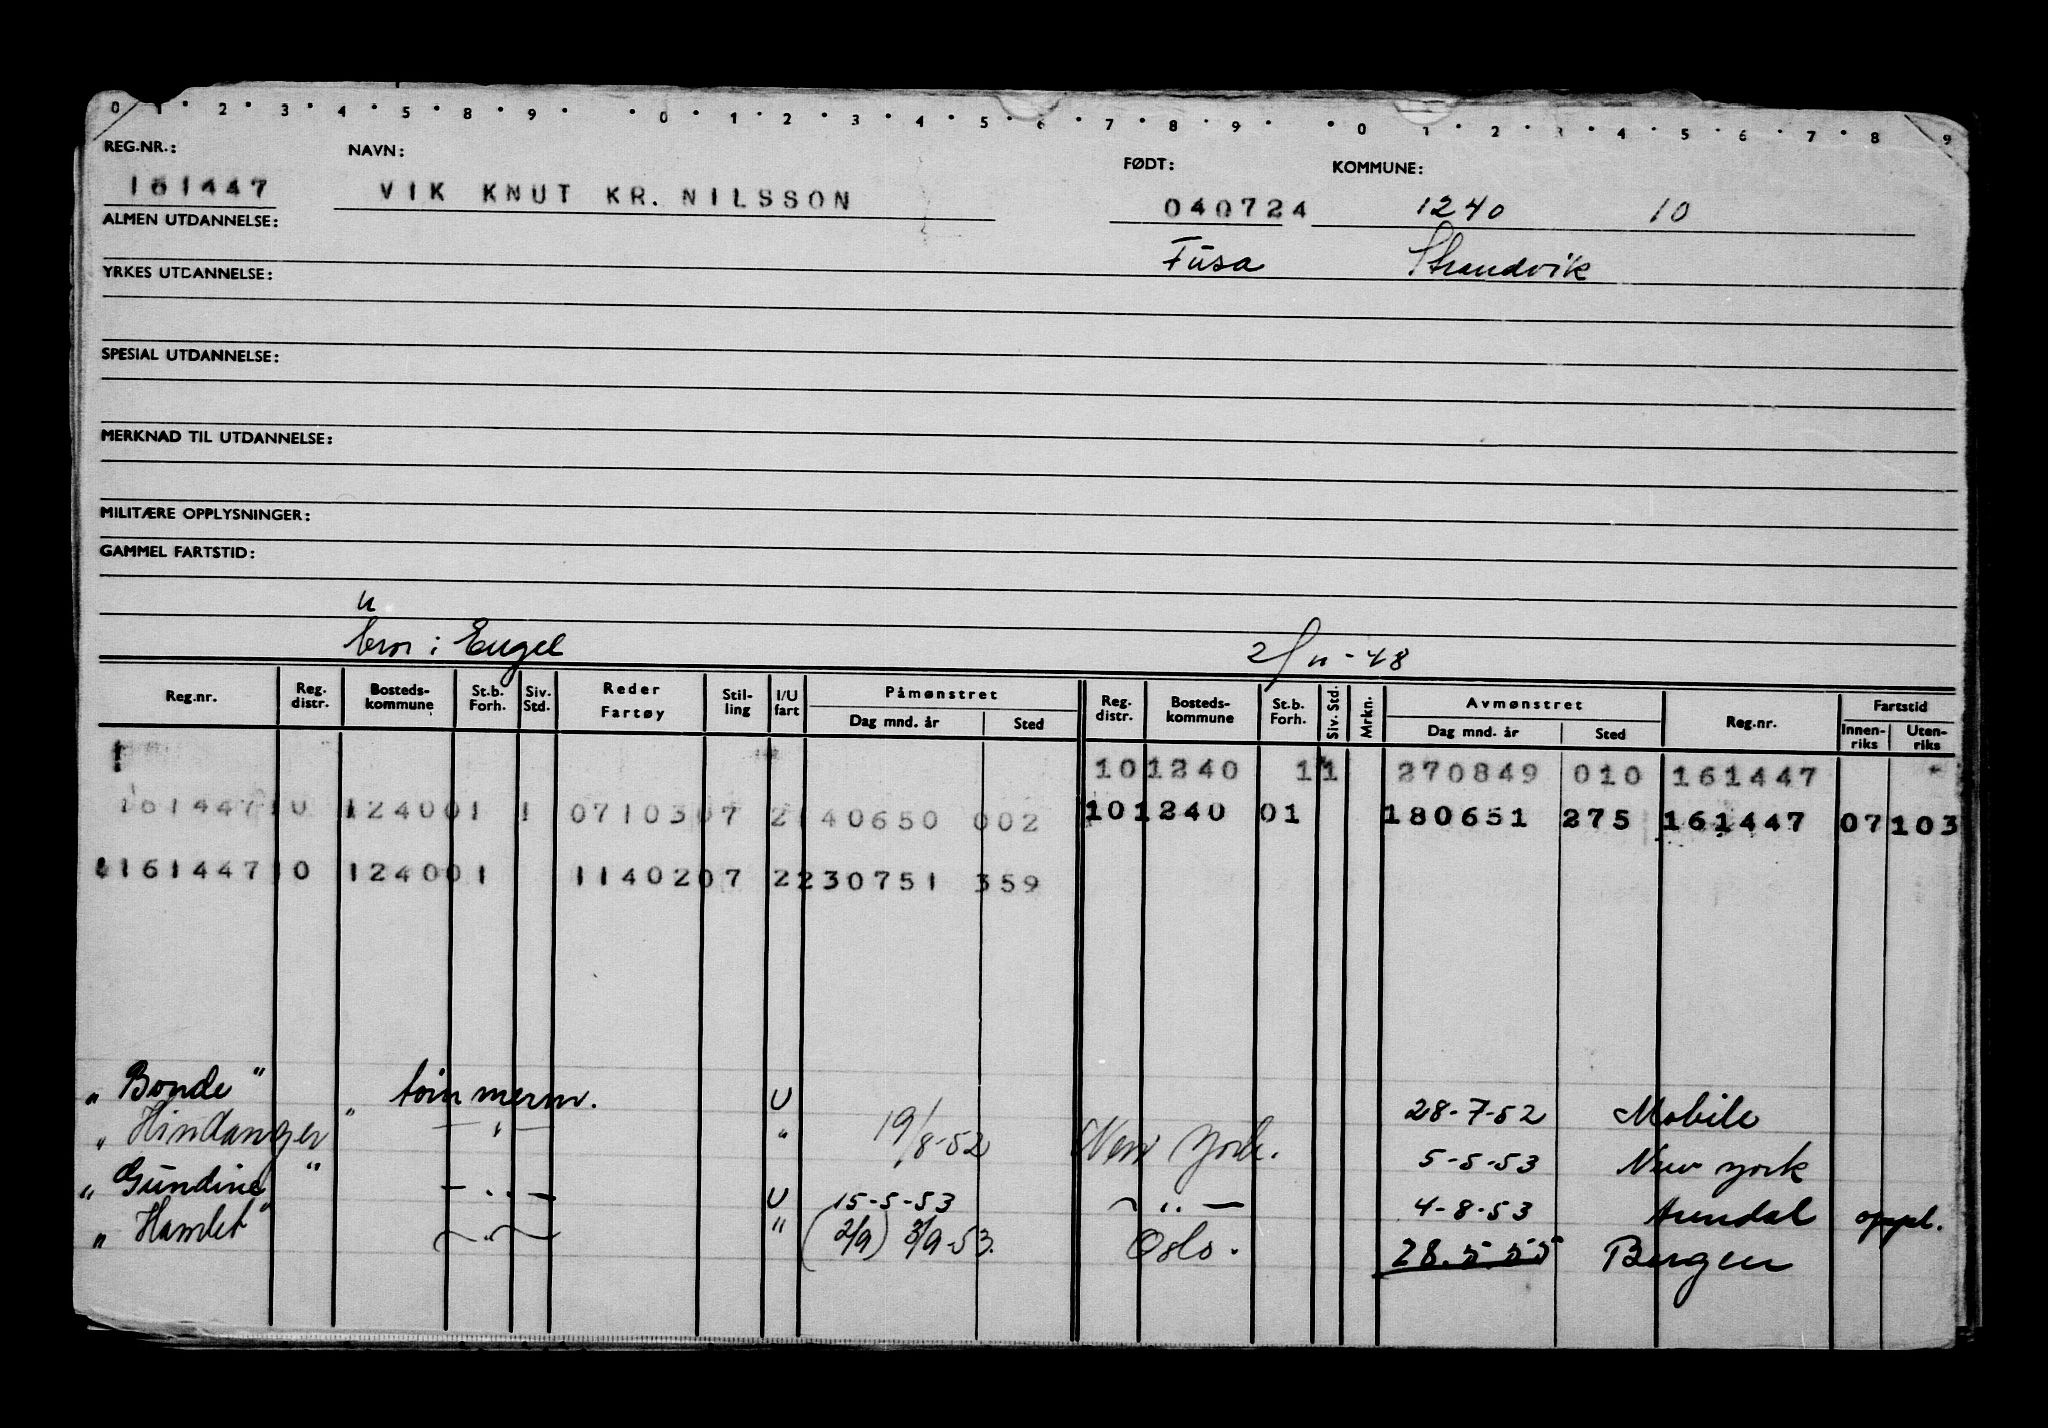 0 1 2 3 4 5 8 9 0 1 2 3 4 5 6 7 8 9 0 1 2 3 4 5 6 7 8 9
REG.NR.: NAVN: FØDT: KOMMUNE:
161447 VIK KNUT KR. NILSSON 040724 1240 10
ALMEN UTDANNELSE: Fusa Strandvik
YRKES UTDANNELSE:
SPESIAL UTDANNELSE:
MERKNAD TIL UTDANNELSE:
MILITÆRE OPPLYSNINGER:
GAMMEL FARTSTID:
i Engel 2/11-48
Reg.nr. Reg. distr. Bosteds-kommune St.b. Forh. Siv. Std. Reder Fartøy Stil-ling I/U fart Påmønstret Dag mnd. år Sted Reg. distr. Bosteds-kommune St.b. Forh. Siv. Std. Mrkn. Avmønstret Dag mnd. år Sted Reg.nr. Fartstid Innen-riks Uten-riks
10 1240 1 1 270849 010 161447
161447 10 1240 01 1 0710307 2 140650 002 10 1240 01 180651 275 161447 07 103
161447 10 1240 01 1140207 2 230751 359
„ Bonde " tømmerm. U 28-7-52 Mobile
„ Hindanger " — " — " 19/8-52 New York. 5-5-53 New York
„ Gundine " — " — U 15-5-53 — " — 4-8-53 Arendal oppl.
„ Hamlet " — " — " (2/9) 3/9-53. Oslo. 28.5.55 Bergen